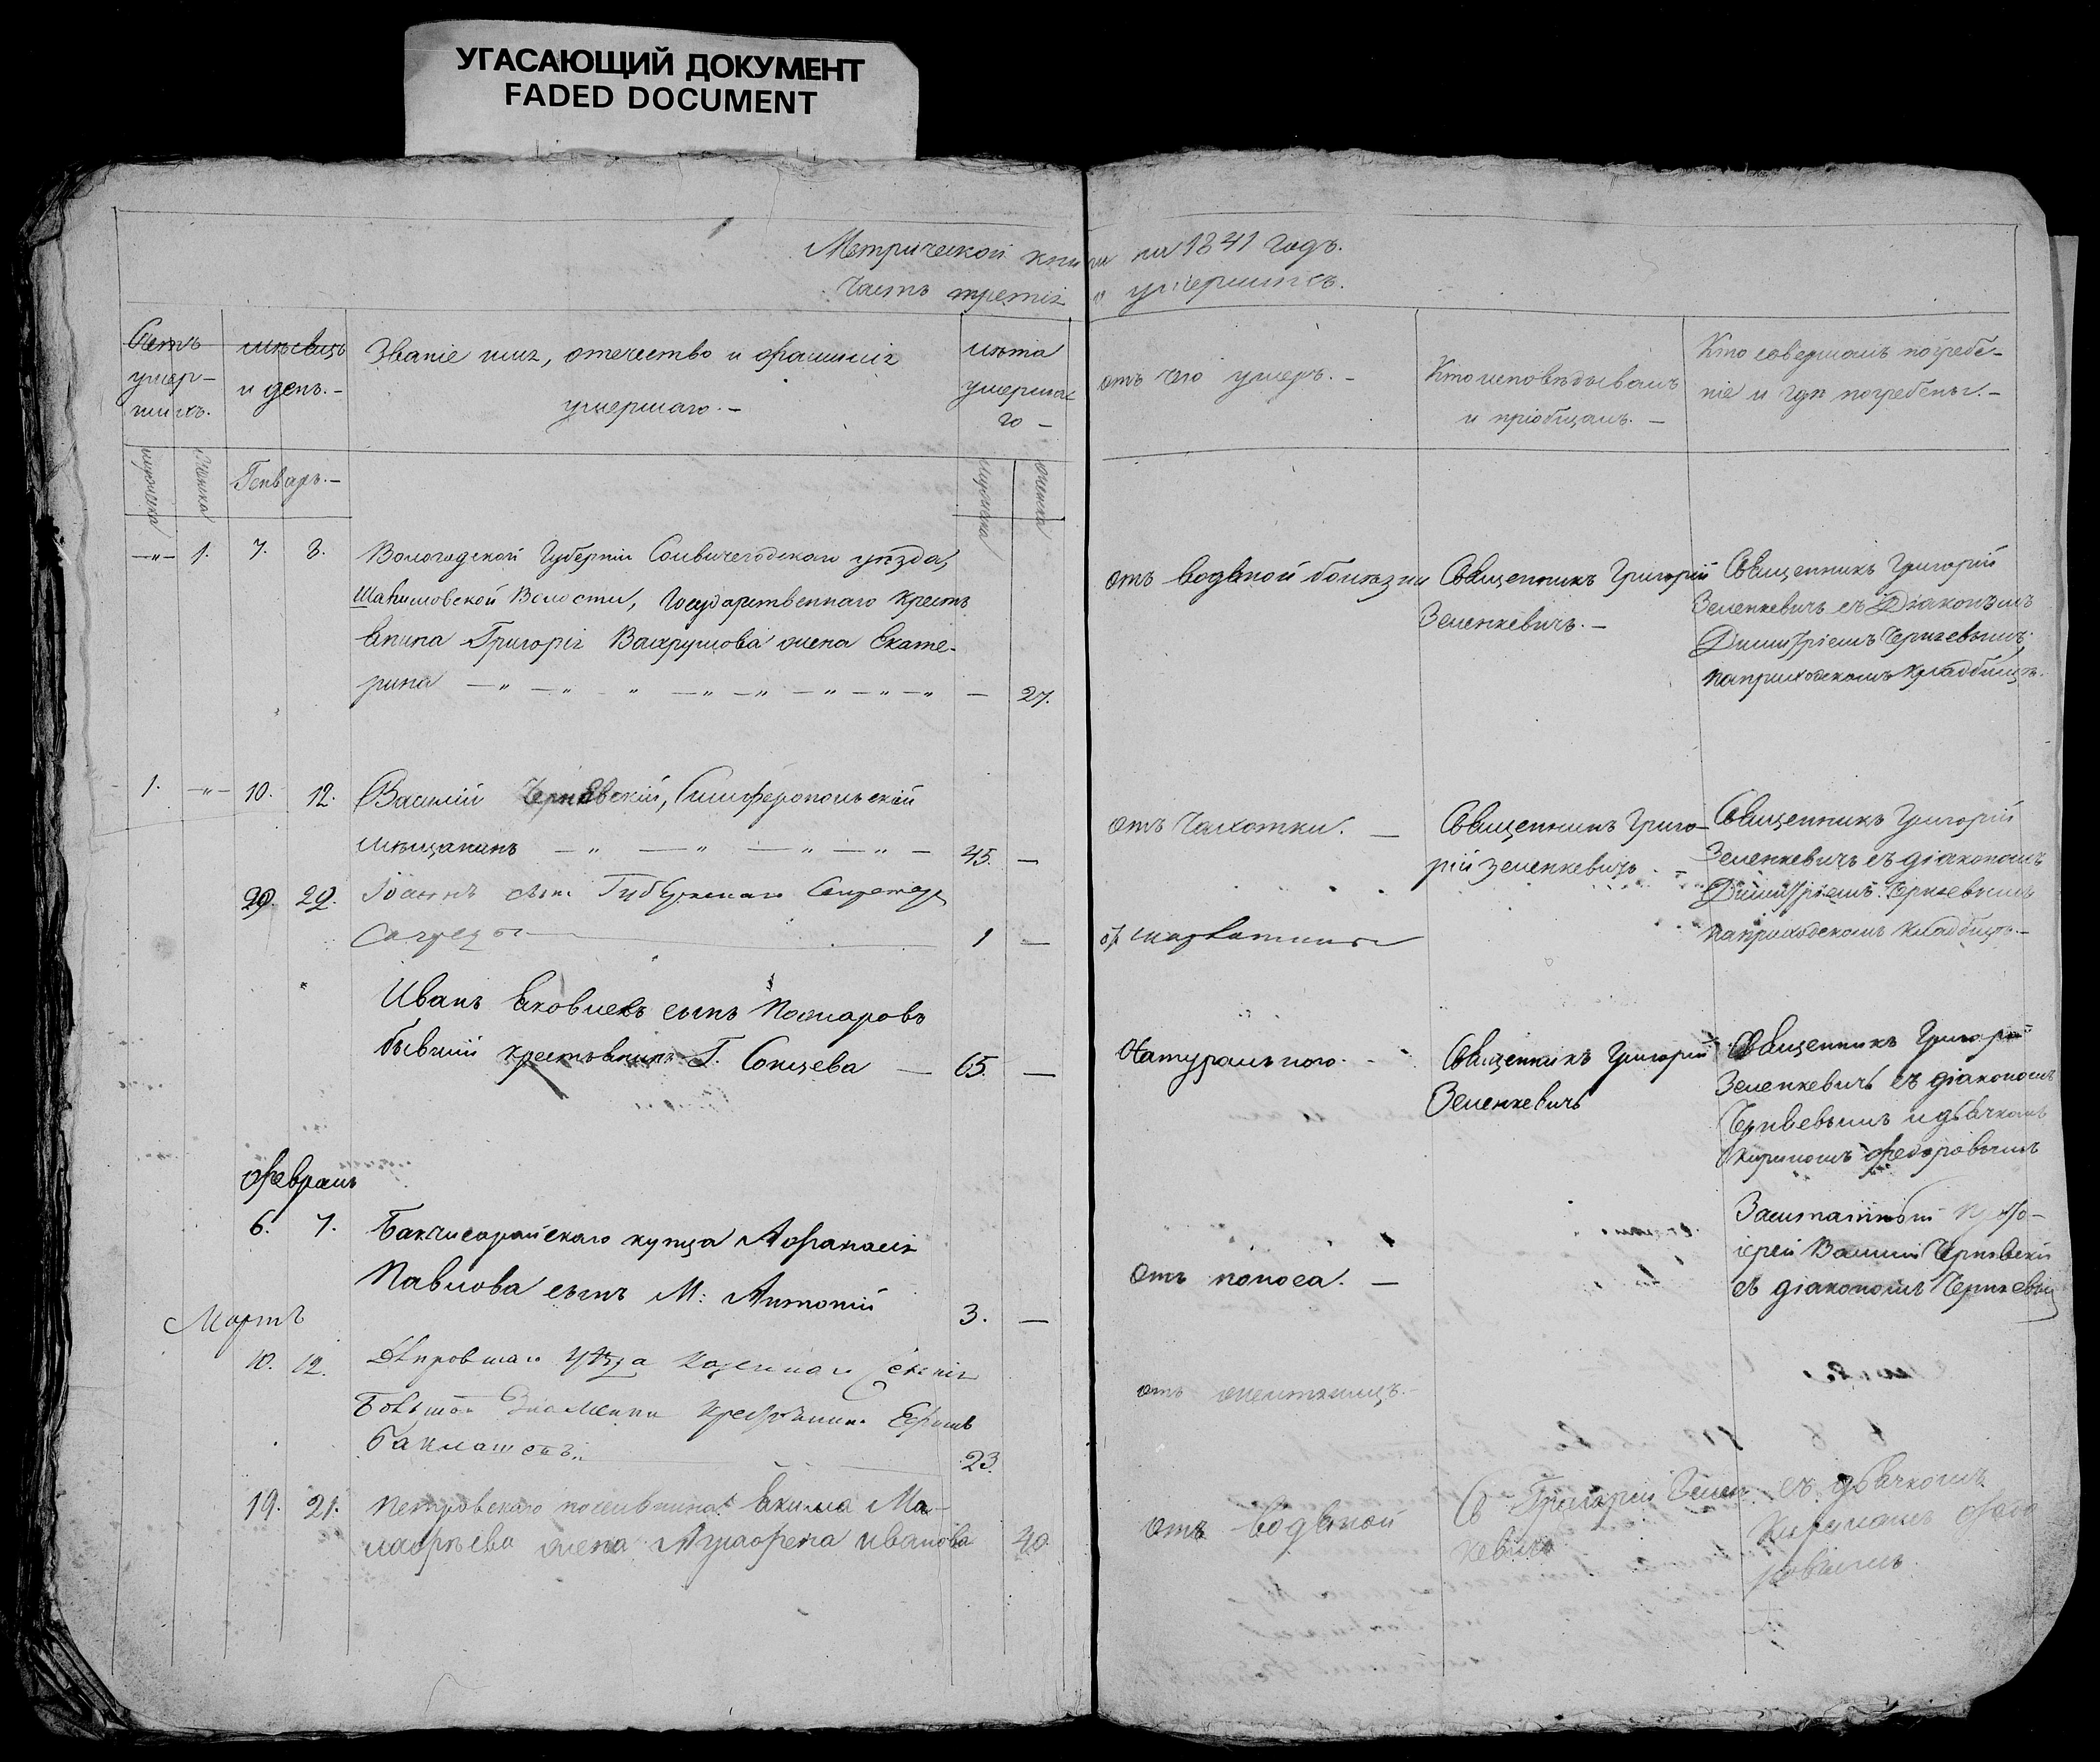 УГАСАЮЩИЙ ДОКУМЕНТ
FADED DOCUMENT
Метрической книги на 1841 годъ.
Часть третія о умершихъ.
Счетъ умер-шихъ.
мѣсяцъ и день.-
Званіе имя, отечество и фамилія
умершаго.-
лѣта
умерша
го -
отъ чего умеръ.-
Кто исповѣдывалъ
и пріобщалъ.-
Кто совершалъ погребе-
ніе и гдѣ погребены.-
мужеска
женска
Генварь.-
мужеска
женска
-"- 1. 7. 8.
Вологодской Губерніи Сольвичегодскаго уѣзда,
Волости, Государственнаго кресть
янина Григорія Вахрушова жена Екате-
рина - 27.
отъ водяной болѣзни
Священникъ Григорій
Зеленкевичъ.-
Священникъ Григорій
Зеленкевичъ съ Діакономъ
Димитріемъ Черняевымъ
на приходскомъ кладбищѣ.
1. -"- 10. 12.
Василій Чернявскій, Симферопольскій
мѣщанинъ 45. -
отъ чахотки. -
Священникъ Григо-
рій Зеленкевичъ
Священникъ Григорій
Зеленкевичъ съ діакономъ
Димитріемъ Черняевымъ
на приходскомъ кладбищѣ.-
29. 29. Іоаннъ сынъ Губернскаго Секретаря
1 -
Иванъ Яковлевъ сынъ Пожаровъ
бывшій крестьянинъ Г. Сонцева - 65. -
Натуральною.
Священникъ Григорій
Зеленкевичъ
Священникъ Григорій
Зеленкевичъ съ діакономъ
Черняевымъ и дьячкомъ
Кириломъ Федоровымъ
Февраль
6. 7. Бакчисарайскаго купца Афанасія
Павлова сынъ М: Антоній 3. -
Отъ поноса. -
Заштатный Прото-
іерей Василій Чернявскій
съ діакономъ Черняевым
Мартъ
10. 12. Днѣпровскаго уѣзда казеннаго селенія
Большой Знаменки крестьянинъ Ефимъ
23.
19. 21. Петровскаго поселянина Якима Ма-
жена Агрофена Иванова 40.
отъ водяной
С. Григорій Зелен
кевичъ
съ дьячкомъ
Кириломъ Федо
ровымъ